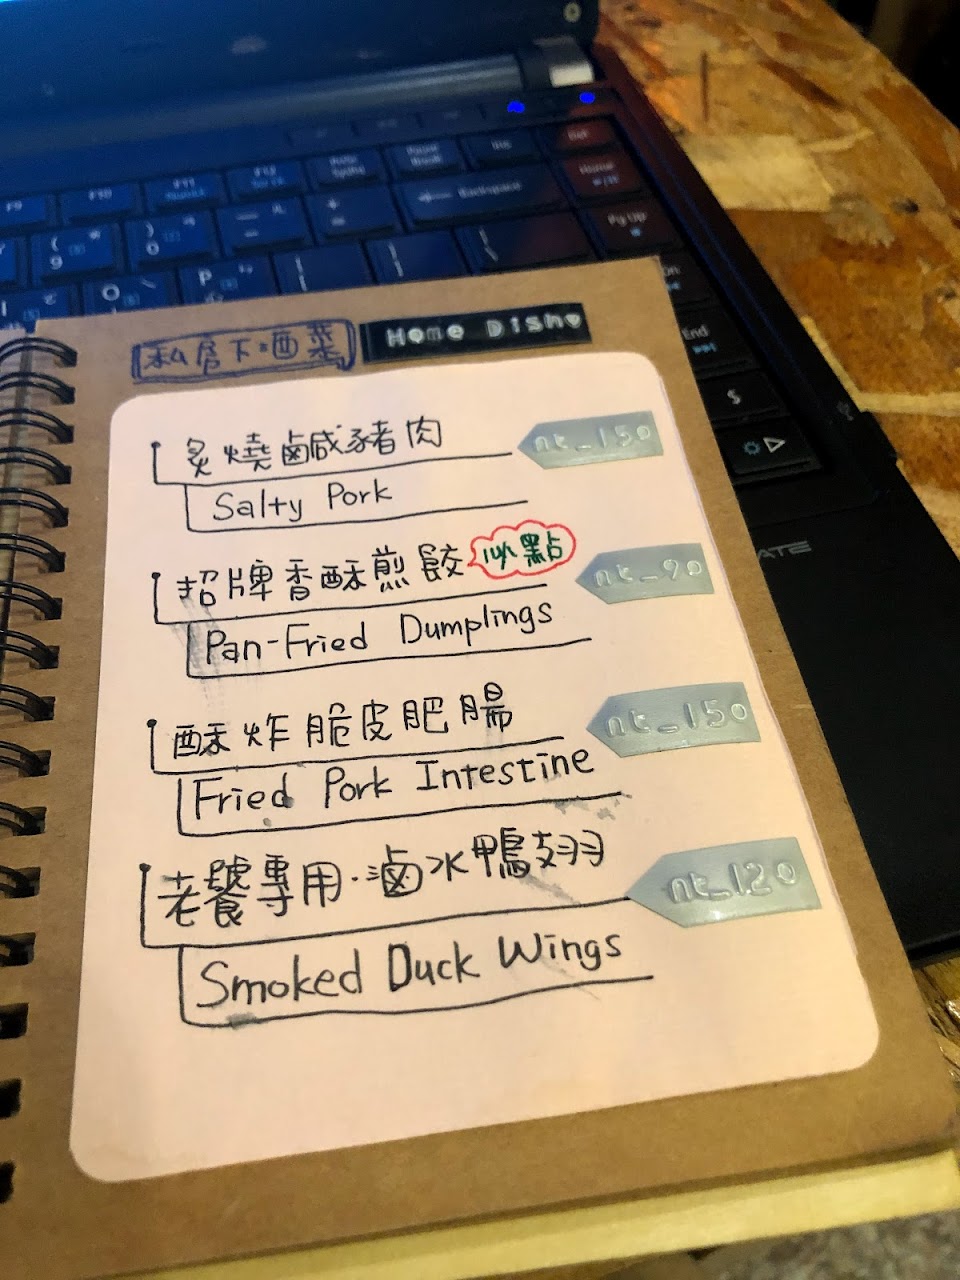 私房下酒菜 Home Dish
炙燒鹹豬肉 nt_150
Salty Pork
招牌香酥煎餃 必點 nt_90
Pan-Fried Dumplings
酥炸脆皮肥腸 nt_150
Fried Pork Intestine
老饕專用·滷水鴨翅 nt_120
Smoked Duck Wings
F9 F10 F11 F12
Backspace
Home
Pg Up
End
( 9 ) 0
O P
$